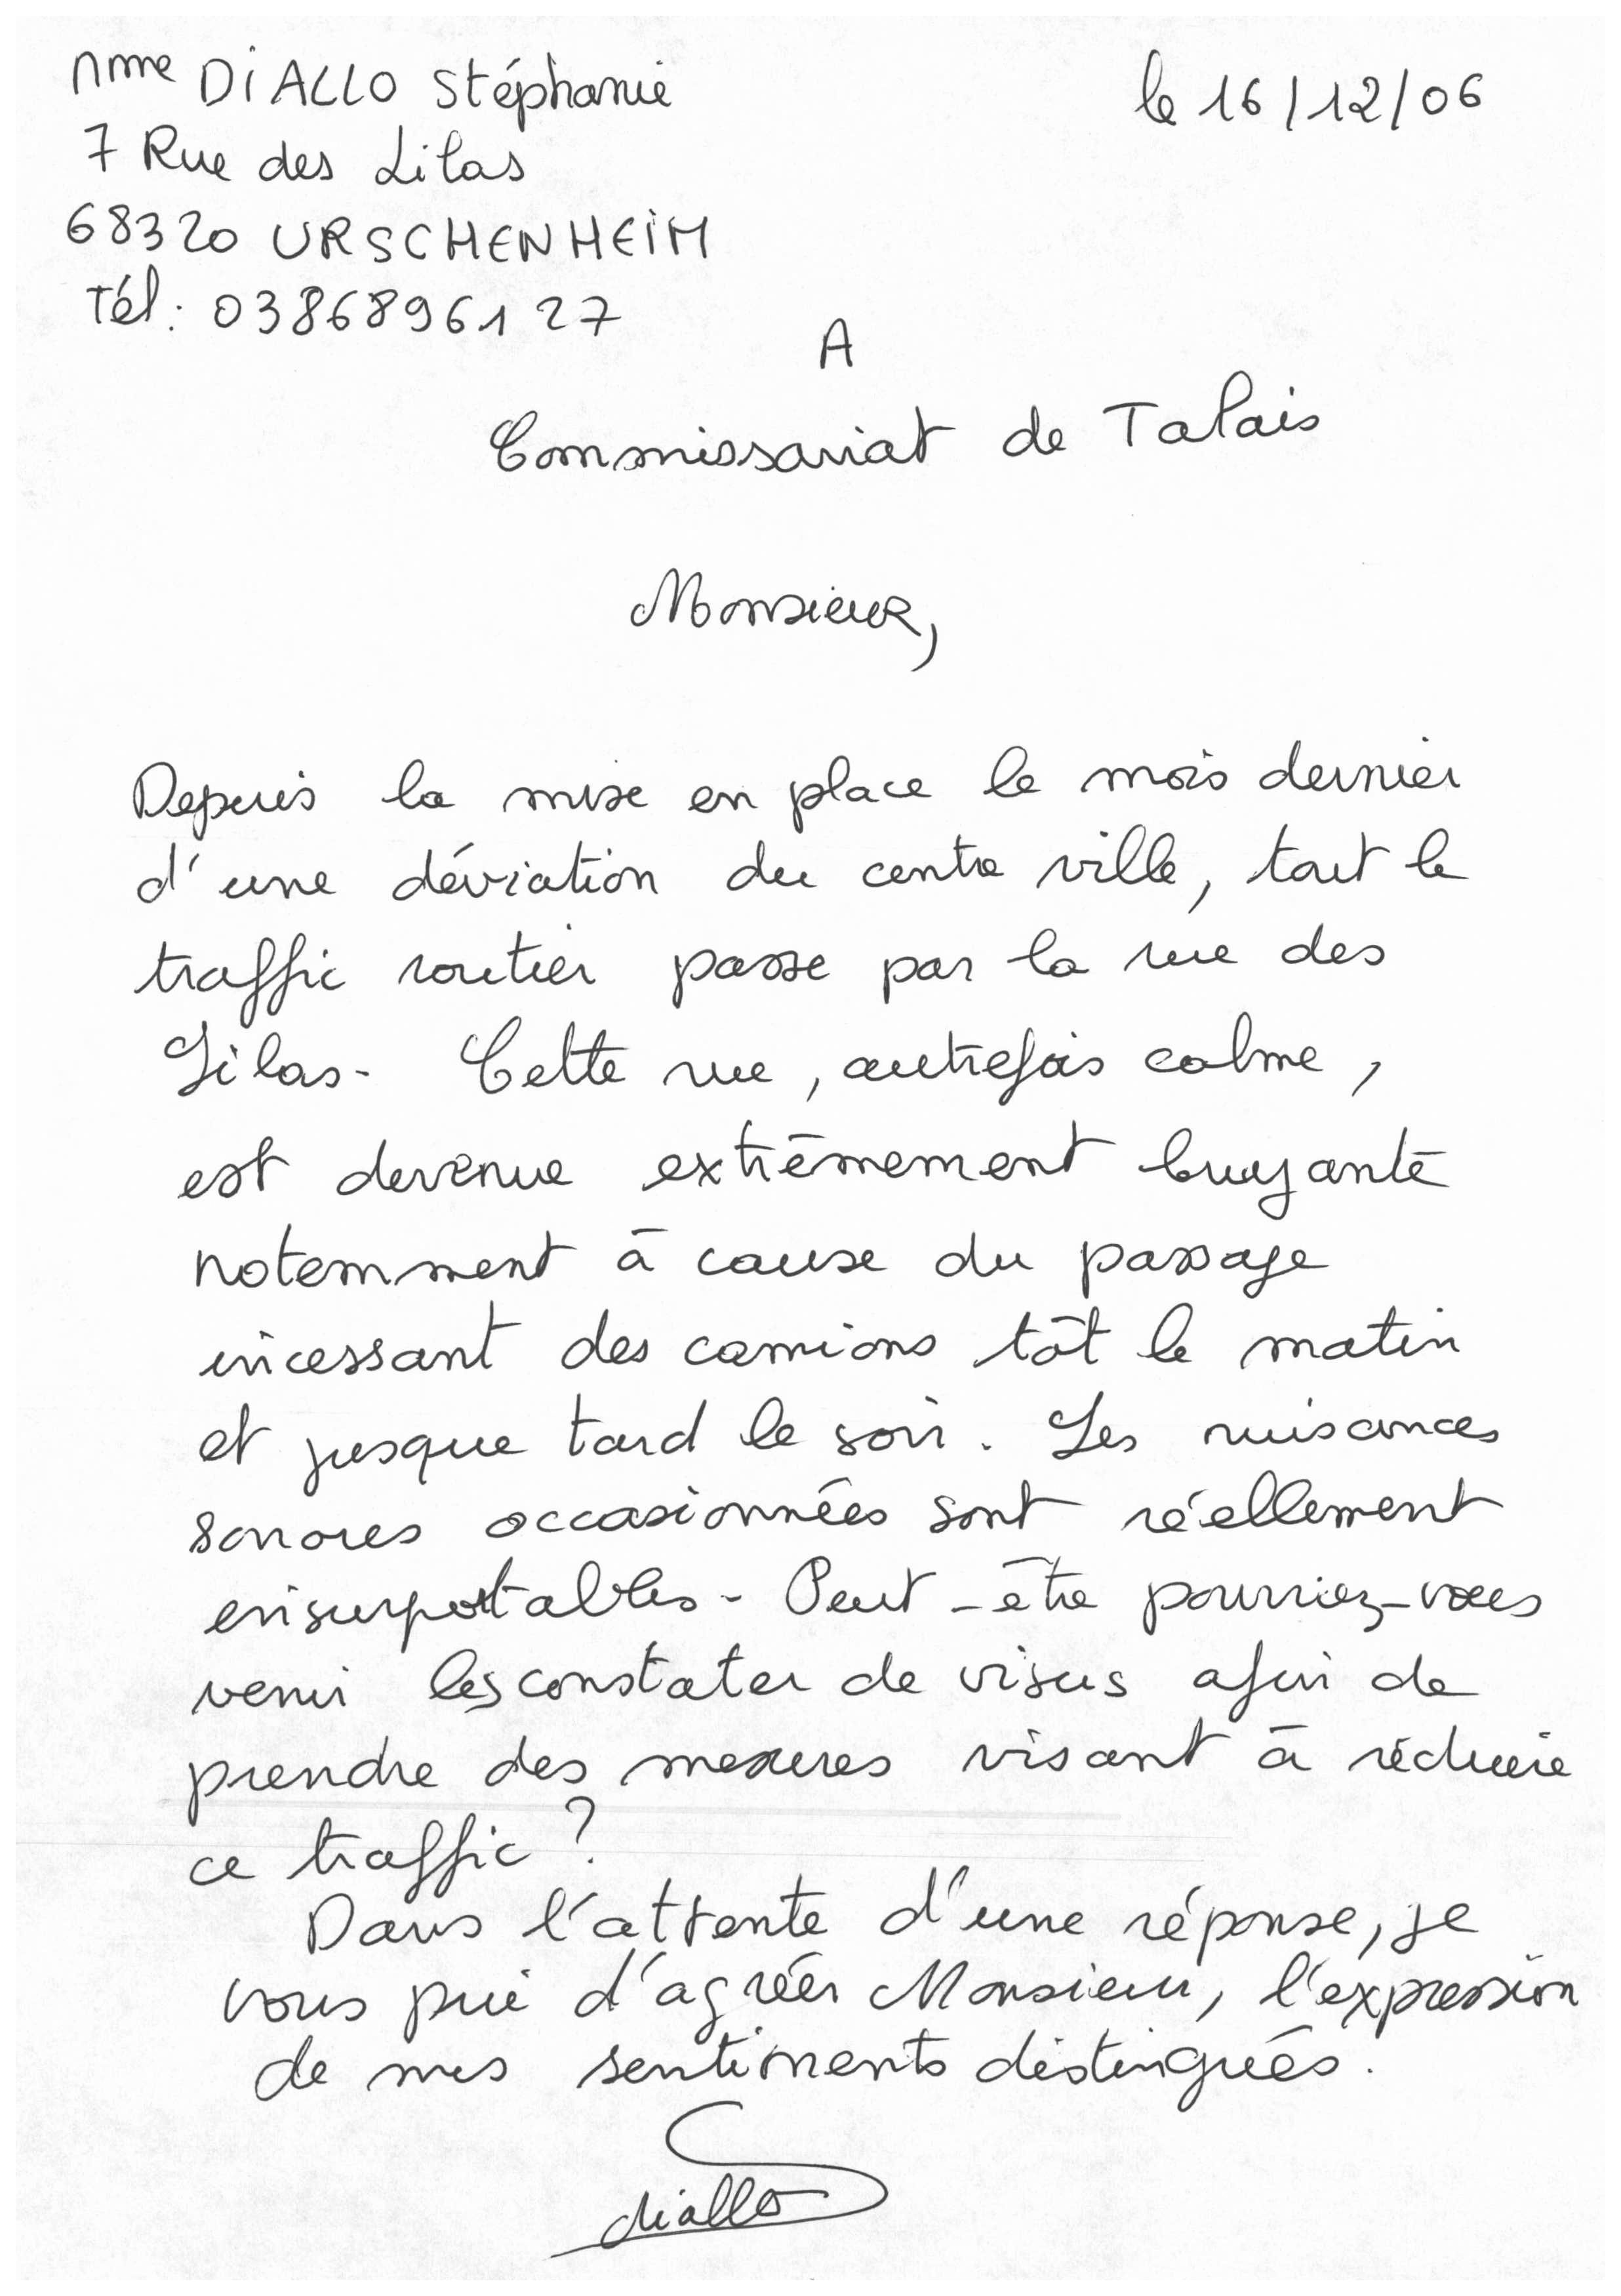 Mme DIALLO Stéphanie
le 16/12/06
7 Rue des Lilas
68320 URSCHENHEIM
Tél : 0386896127
A
Commissariat de Talais
Monsieur,
Depuis la mise en place le mois dernier
d'une déviation du centre ville, tout le
traffic routier passe par la rue des
Lilas. Cette rue, autrefois calme,
est devenue extrêmement bruyante
notemment à cause du passage
incessant des camions tôt le matin
et jusque tard le soir. Les nuisances
sonores occasionnées sont réellement
insurportables. Peut-être pourriez-vous
venir les constater de visus afin de
prendre des mesures visant à réduire
ce traffic ?
Dans l'attente d'une réponse, je
vous prie d'agréer Monsieur, l'expression
de mes sentiments distingués.
diallo